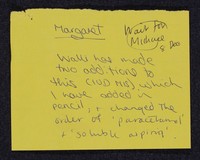 Margaret
Wait for
Michael
8 Dec
Walls has made
two additions to
this (100 MS) which
I have added in
pencil, + changed the
order of 'paracetamol'
+ 'soluble aspirin'.